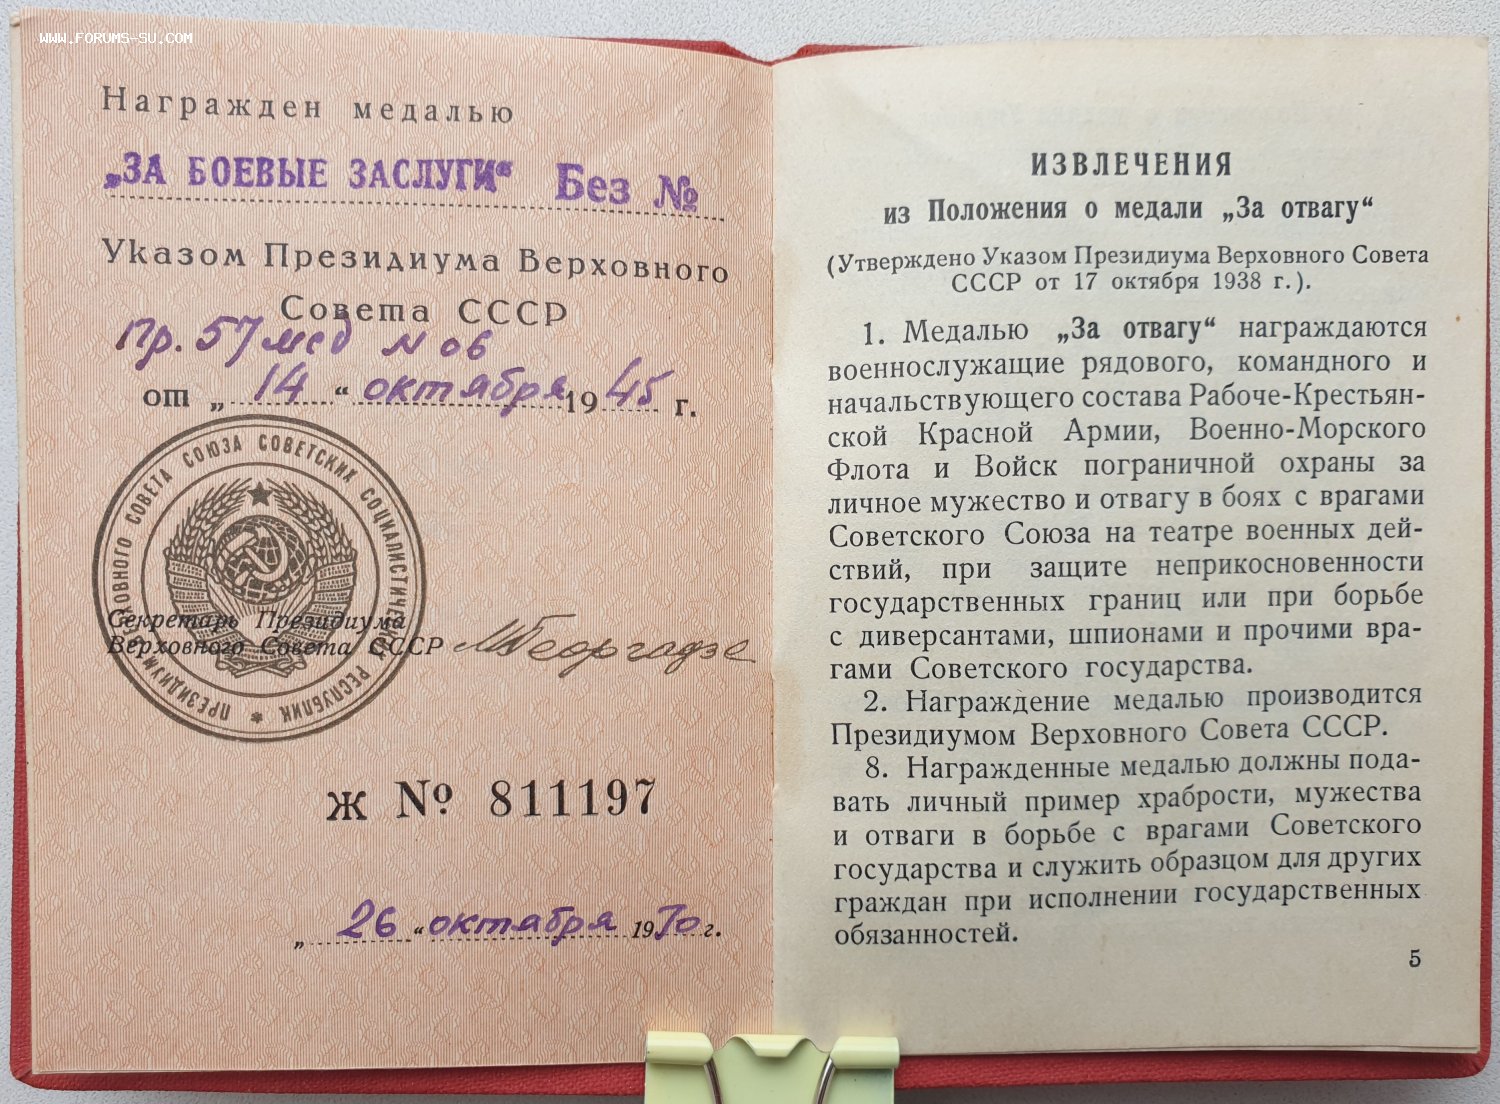 www.forums-su.com
Награжден медалью
„ЗА БОЕВЫЕ ЗАСЛУГИ“ Без №
Указом Президиума Верховного
Совета СССР
Пр. 57 мсд N 06
от „14“ октября 1945 г.
ПРЕЗИДИУМ ВЕРХОВНОГО СОВЕТА СОЮЗА СОВЕТСКИХ СОЦИАЛИСТИЧЕСКИХ РЕСПУБЛИК
Секретарь Президиума
Верховного Совета СССР МГеоргадзе
Ж № 811197
„26“ октября 1970 г.
ИЗВЛЕЧЕНИЯ
из Положения о медали „За отвагу“
(Утверждено Указом Президиума Верховного Совета
СССР от 17 октября 1938 г.).
1. Медалью „За отвагу“ награждаются
военнослужащие рядового, командного и
начальствующего состава Рабоче-Крестьян-
ской Красной Армии, Военно-Морского
Флота и Войск пограничной охраны за
личное мужество и отвагу в боях с врагами
Советского Союза на театре военных дей-
ствий, при защите неприкосновенности
государственных границ или при борьбе
с диверсантами, шпионами и прочими вра-
гами Советского государства.
2. Награждение медалью производится
Президиумом Верховного Совета СССР.
8. Награжденные медалью должны пода-
вать личный пример храбрости, мужества
и отваги в борьбе с врагами Советского
государства и служить образцом для других
граждан при исполнении государственных
обязанностей.
5